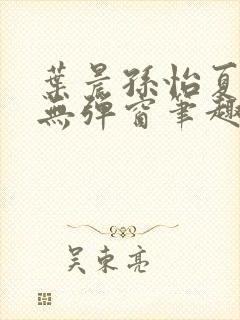 葉晨孫怡夏
無彈窗筆趣
吳東亮